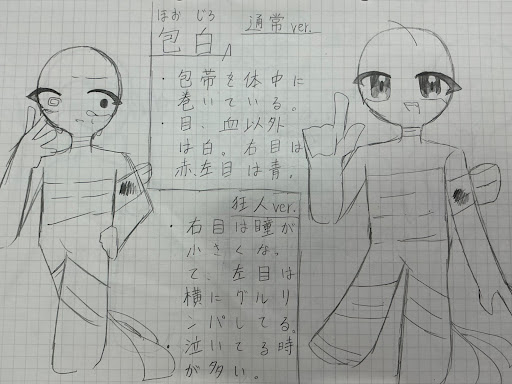 ほおじろ
包白
通常ver.
・包帯を体中に
巻いている。
・目、血以外
は白。右目は
赤、左目は青。
狂人ver.
・右目は瞳が
小さくな。
て、左目は
横にグルリ
ンパしてる。
・泣いてる時
が多い。